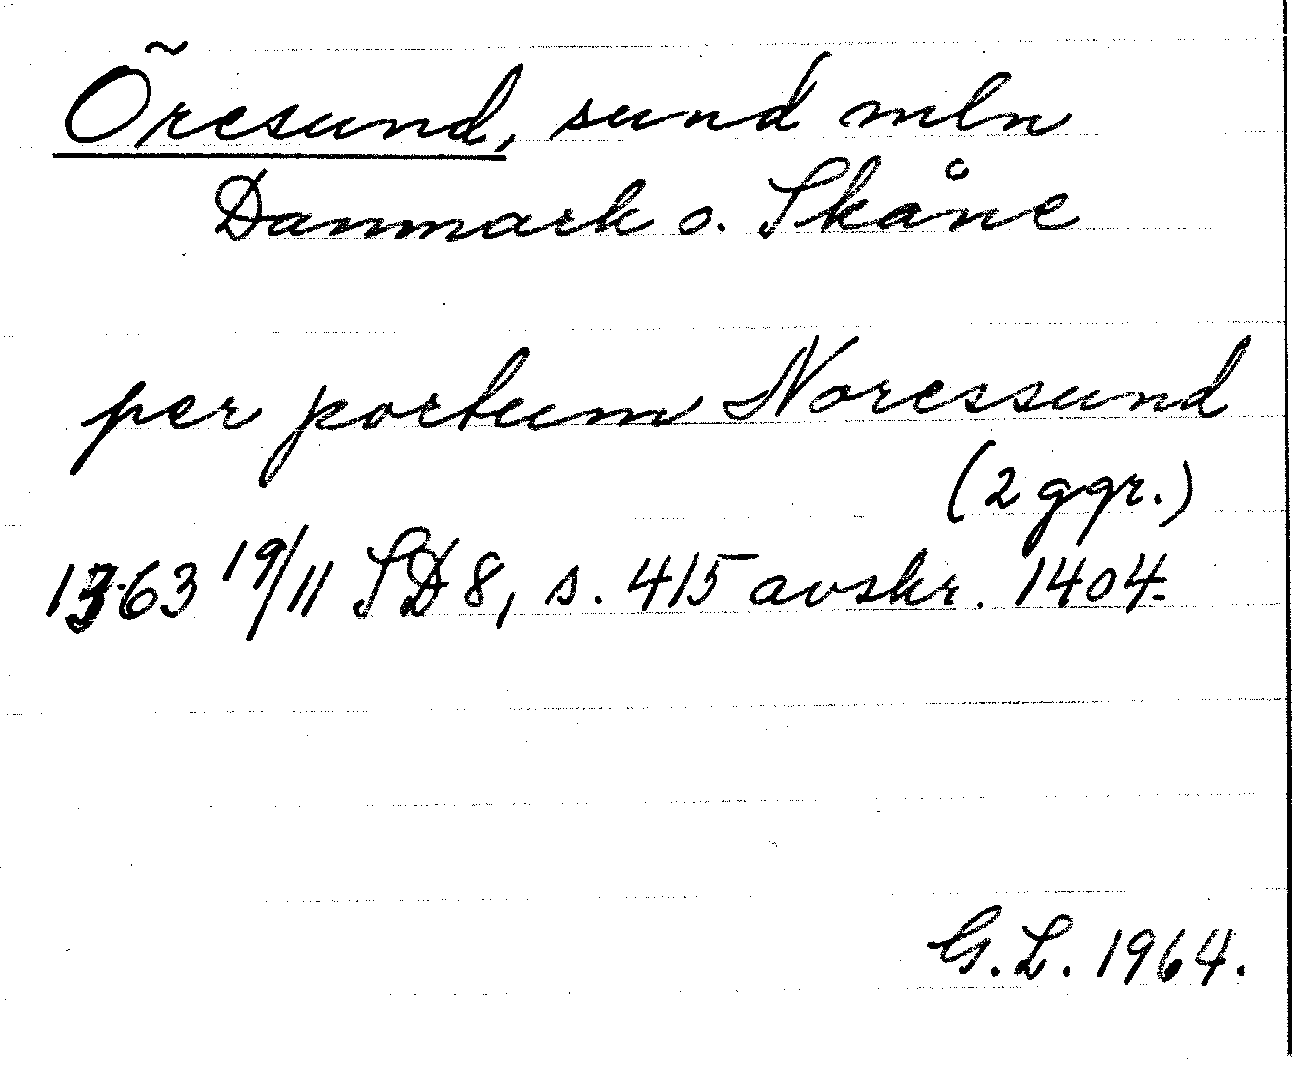 Öresund, sund mln
Danmark o. Skåne
per portum Noressund
(2 ggr.)
1363 19/11 SD 8, s. 415 avskr. 1404.
G. L. 1964.